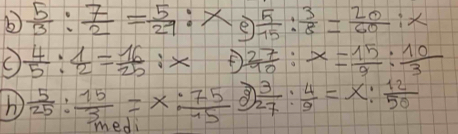 b) 5/3 : 7/2 = 5/21 : x e) 5/15 : 3/8 = 20/60 : x
c) 4/5 : 1/2 = 16/25 : x f) 27/10 : x = 15/9 : 10/3
h) 5/25 : 15/3 = x : 75/15 g) 3/27 : 4/9 = x : 12/50
medi